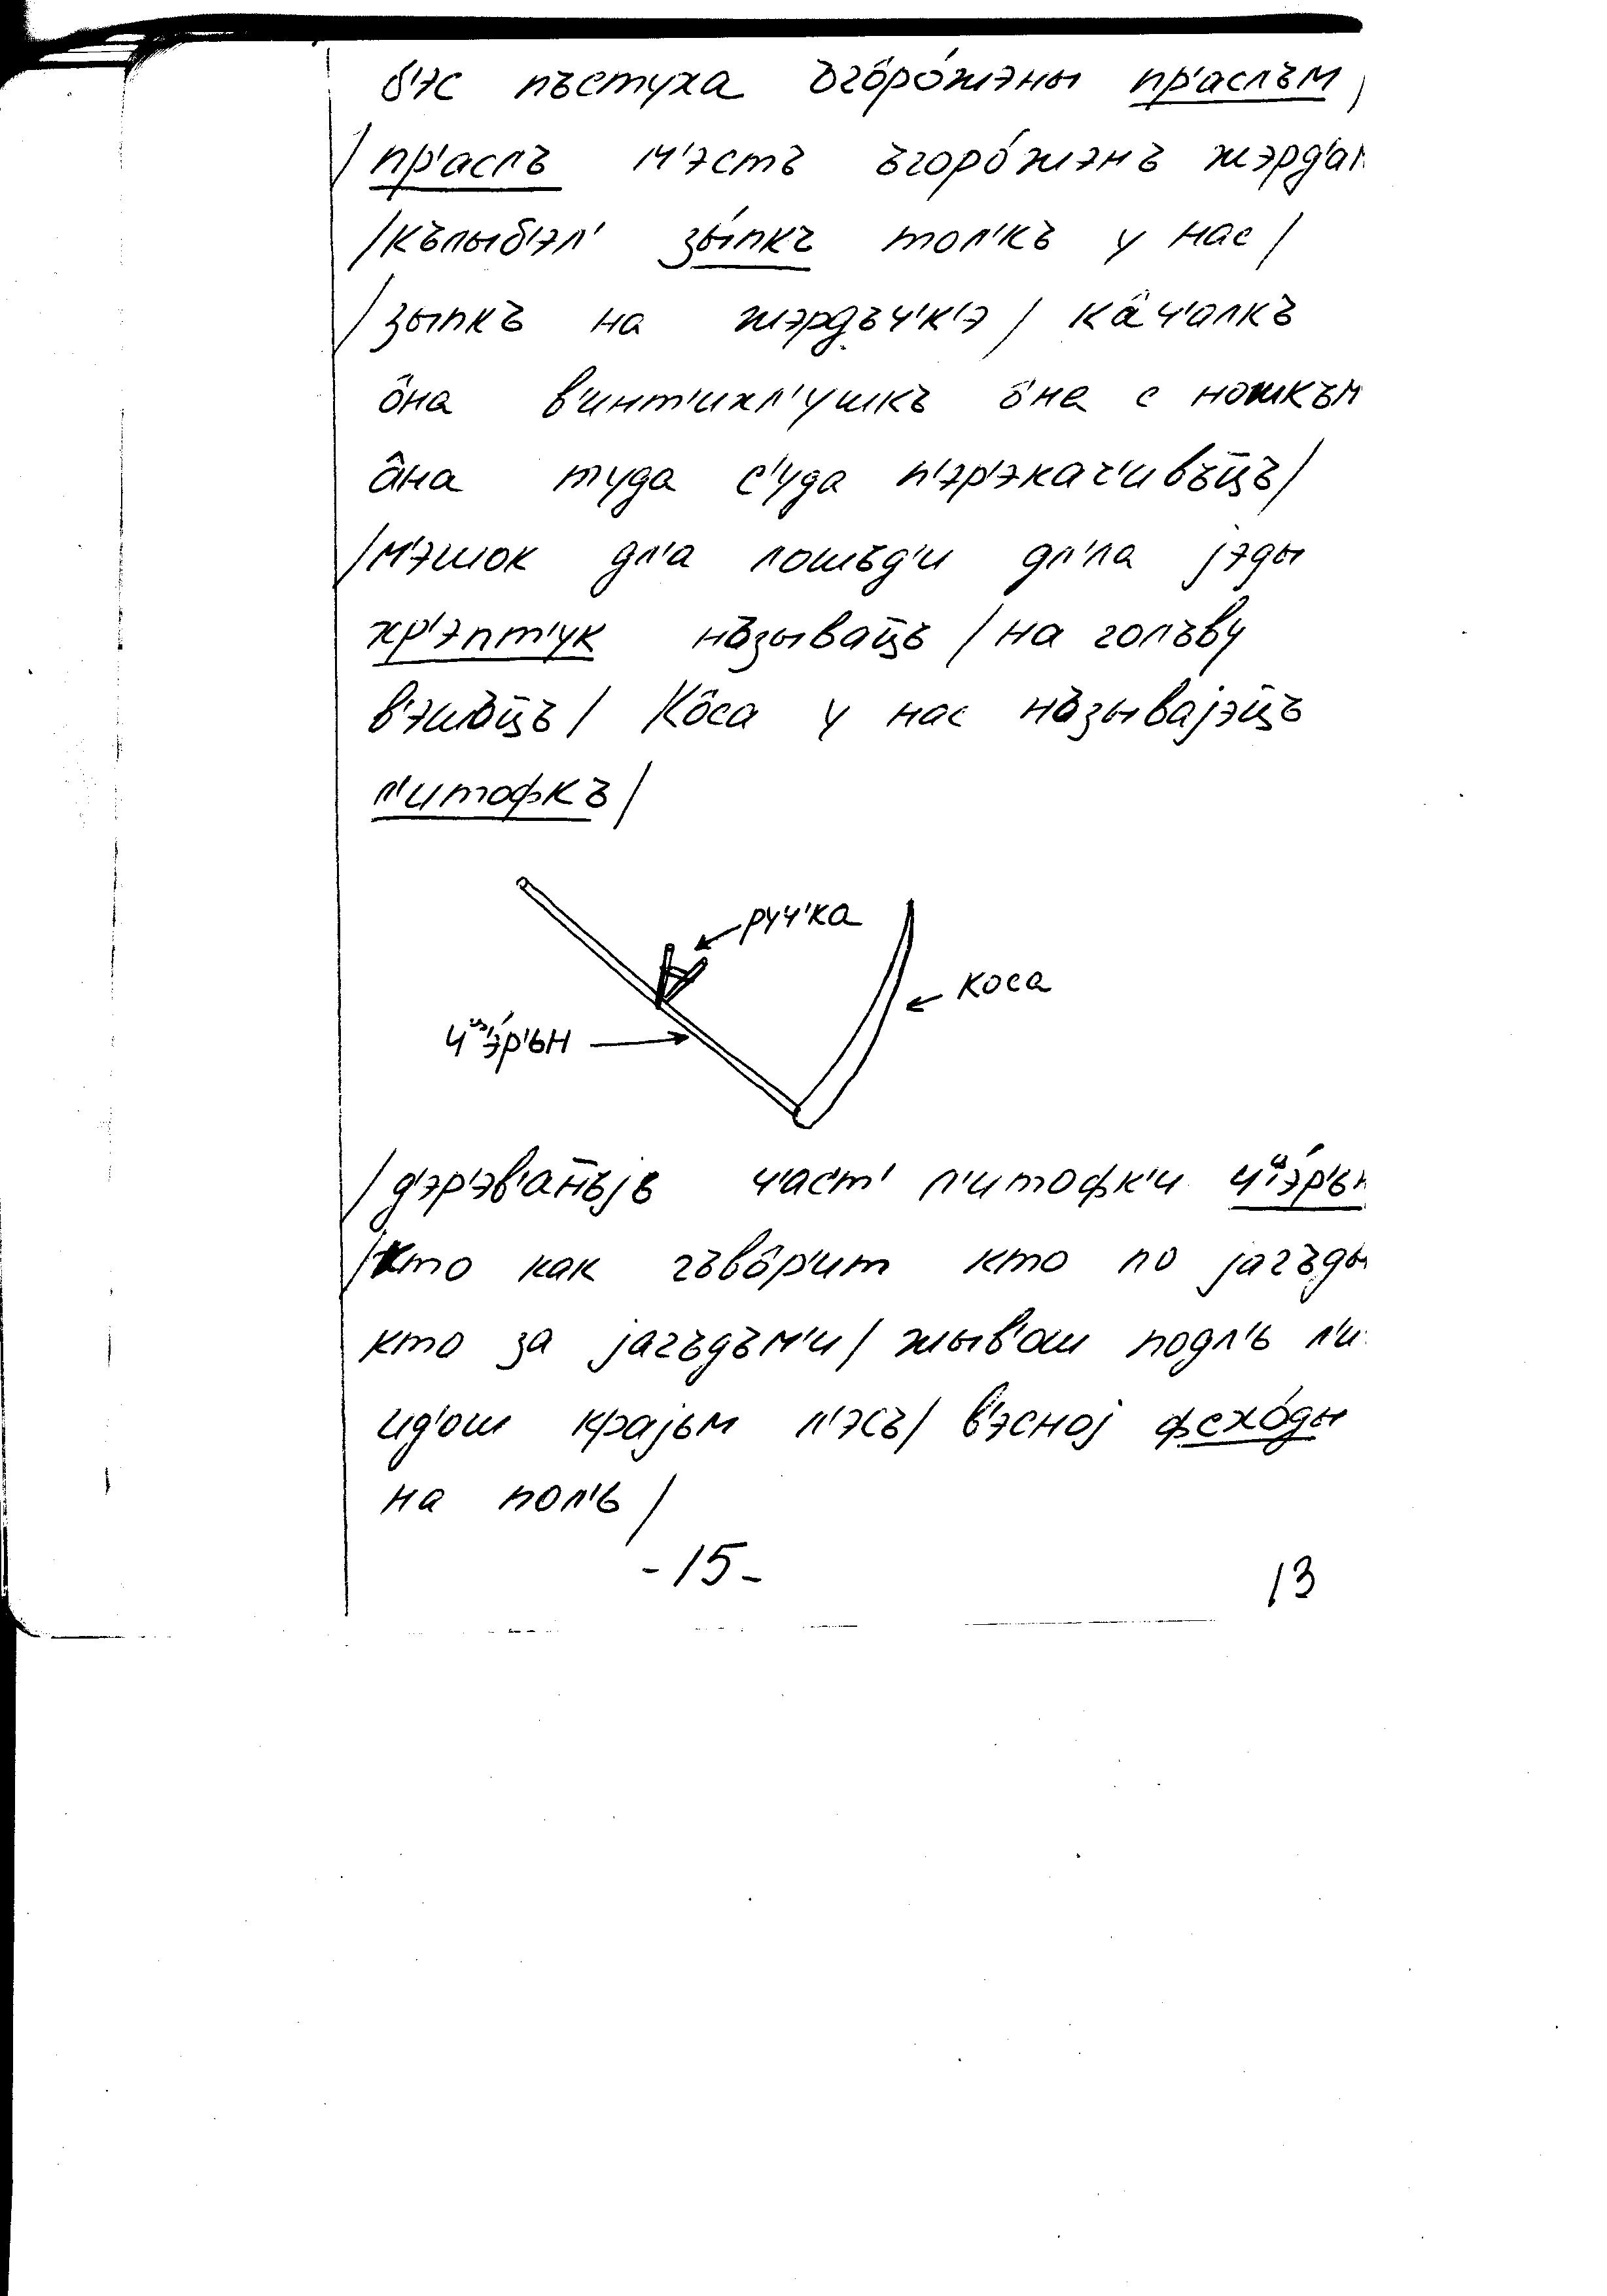 б'эс пъстуха ъго̂ро́жэны пр'аслъм /
/ пр'аслъ м'эстъ ъгоро́жэнъ жэрд'ам
/ кълыб'эл' зы́пкъ тол'къ у нас /
/ зыпкъ на жэрдъч'к'э / ка̂ч'алкъ
о̂на в'инт'ихл'ушкъ о̂на с ношкъм
а̂на туда с'уда п'эр'экач'ивъц̄ъ /
/ м'эшок дл'а лошъд'и дл'а jэды
хр'эпт'ук нъзывац̄ъ / на голъву
в'эшъц̄ъ / Ко̂са у нас нъзываjэц̄ъ
л'итофкъ /
руч'ка
коса
ч'ᵘ'э́р'ьн
/ д'эр'эв'ан̄ъjь ч'ас'т' л'итофк'и ч'ᵘ'э́р'ьн
/ кто как гъво̂р'ит кто по jагъды
кто за jагъдъм'и / жыв'ош подл'ь л'и
ид'ош краjьм л'эсъ / в'эсноj фсхо́ды
на пол'ь /
-15-
13